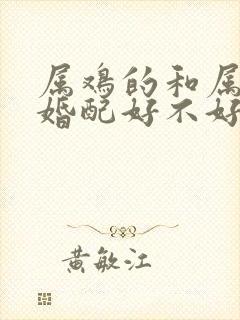 属鸡的和属
婚配好不好
黄敏江